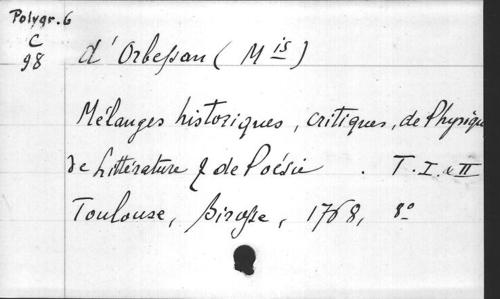 Polygr. 6
C
98
d'Orbessan (Mis)
Mélanges historiques, critiques, de Physique
de Littérature & de Poésie. T. I & II
Toulouse, Birosse, 1768, 8°